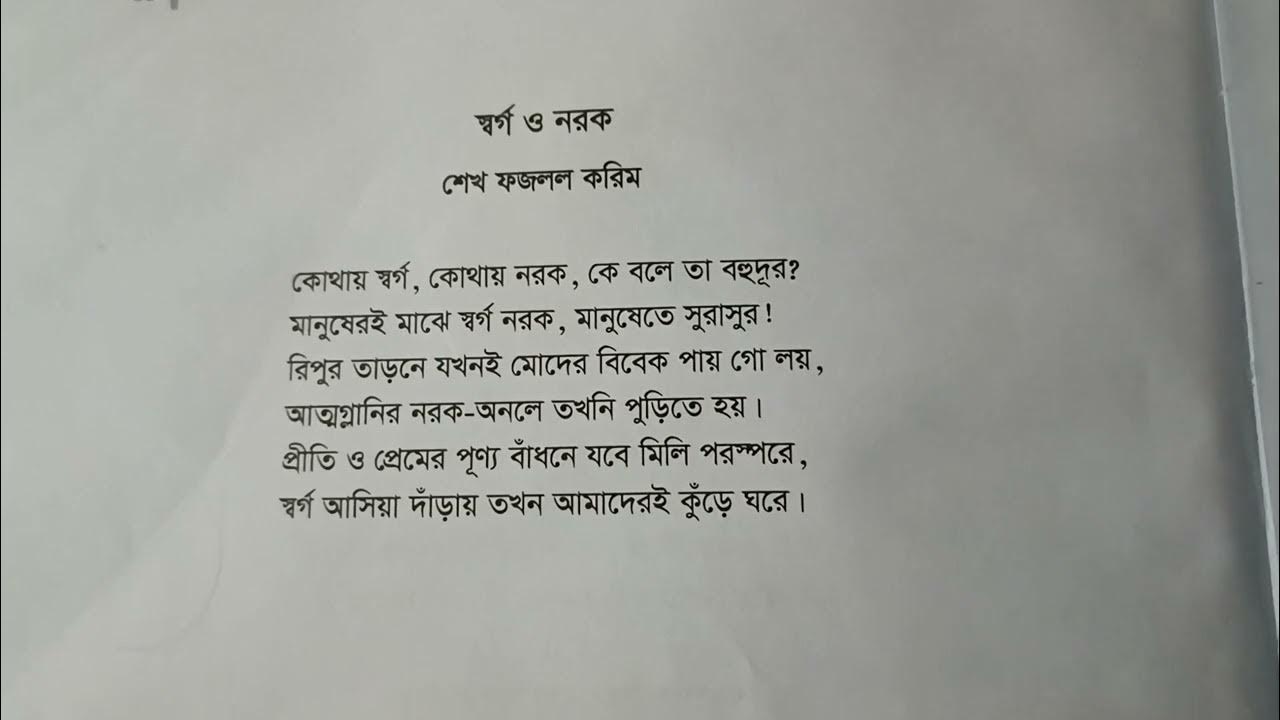 স্বর্গ ও নরক
শেখ ফজলল করিম
কোথায় স্বর্গ, কোথায় নরক, কে বলে তা বহুদূর?
মানুষেরই মাঝে স্বর্গ নরক, মানুষেতে সুরাসুর!
রিপুর তাড়নে যখনই মোদের বিবেক পায় গো লয়,
আত্মগ্লানির নরক-অনলে তখনি পুড়িতে হয়।
প্রীতি ও প্রেমের পূণ্য বাঁধনে যবে মিলি পরস্পরে,
স্বর্গ আসিয়া দাঁড়ায় তখন আমাদেরই কুঁড়ে ঘরে।